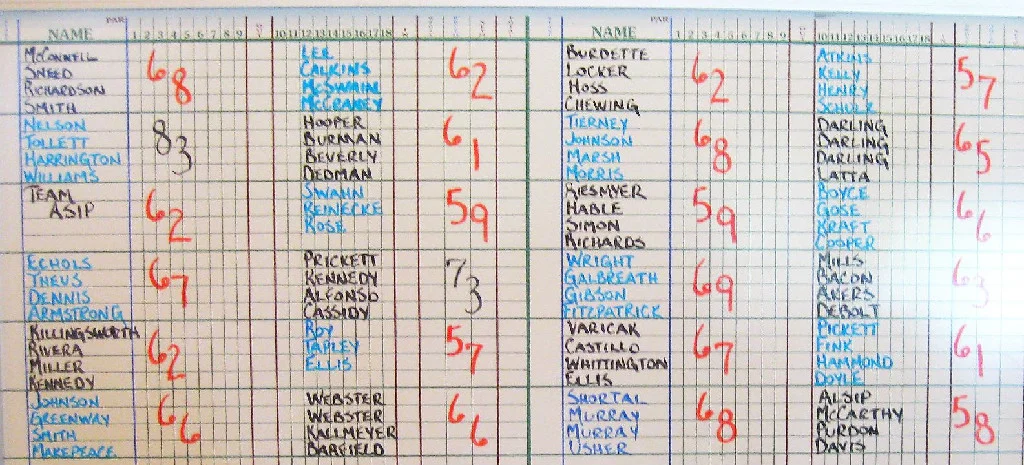 PAR
NAME
1 2 3 4 5 6 7 8 9
10 11 12 13 14 15 16 17 18
McCONNELL
SNEED
RICHARDSON
SMITH
68
LEE
CALKINS
McSWAIN
McCRANEY
62
NELSON
TOLLETT
HARRINGTON
WILLIAMS
83
HOOPER
BURMAN
BEVERLY
DEDMAN
61
TEAM
ASIP
62
SWAHN
REINECKE
ROSE
59
ECHOLS
THEUS
DENNIS
ARMSTRONG
67
PRICKETT
KENNEDY
ALFONSO
CASSIDY
73
KILLINGSWORTH
RIVERA
MILLER
KENNEDY
62
ROY
TAPLEY
ELLIS
57
JOHNSON
GREENWAY
SMITH
MAKEPEACE
66
WEBSTER
WEBSTER
KALLMEYER
BARFIELD
66
PAR
NAME
1 2 3 4 5 6 7 8 9
10 11 12 13 14 15 16 17 18
BURDETTE
LOCKER
HOSS
CHEWING
62
ATKINS
KELLY
HENRY
57
TIERNEY
JOHNSON
MARSH
MORRIS
68
DARLING
DARLING
DARLING
LATTA
65
HABLE
SIMON
RICHARDS
59
BOYCE
GOSE
KRAFT
COOPER
66
WRIGHT
GALBREATH
GIBSON
FITZPATRICK
69
MILLS
BACON
AKERS
DEBOLT
63
VARICAK
CASTILLO
WHITTINGTON
ELLIS
67
PICKETT
FINK
HAMMOND
DOYLE
61
SHORTAL
MURRAY
MURRAY
USHER
68
ALSIP
McCARTHY
PURDON
DAVIS
58